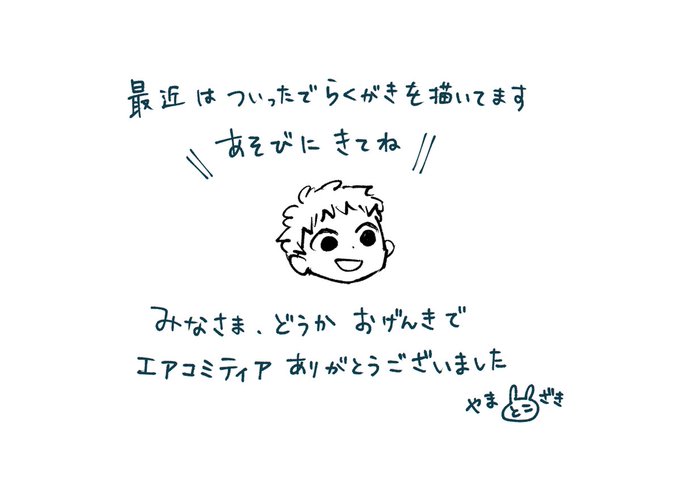 最近は ついったで らくがきを 描いてます
あそびに きてね
みなさま、どうか おげんきで
エアコミティア ありがとうございました
やま とこ ざき